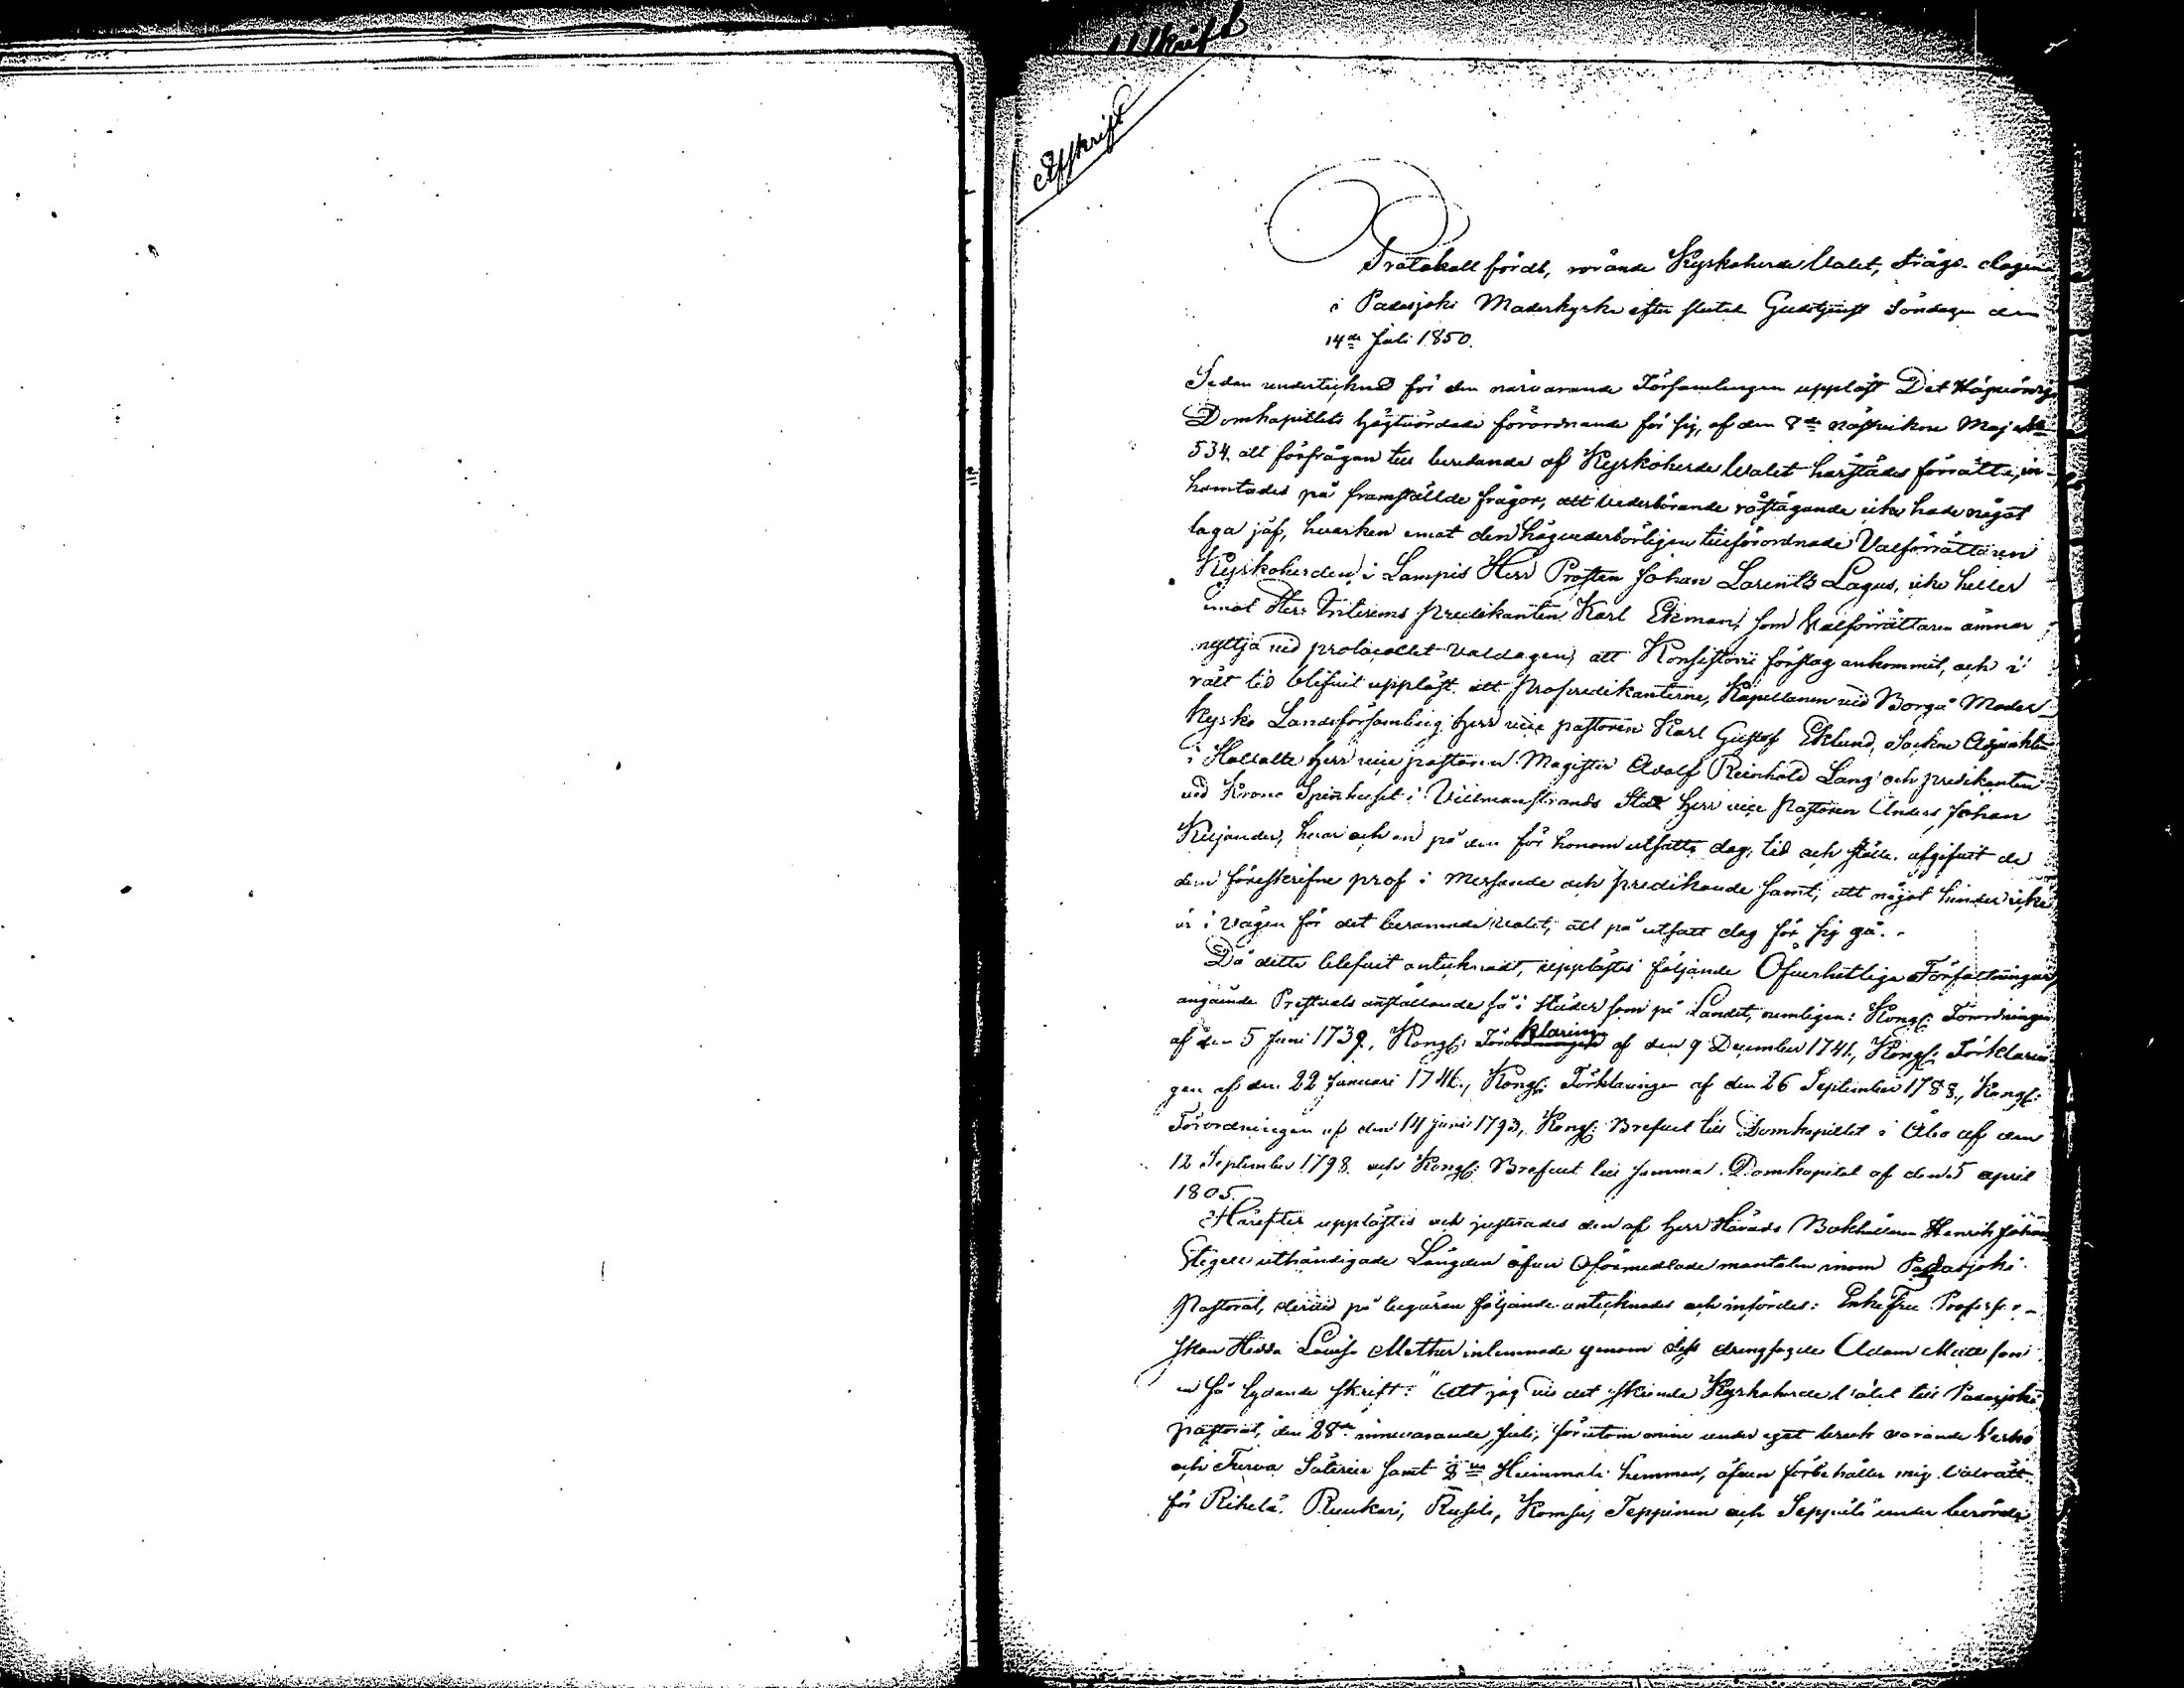 Utskrift
Afskrift
Protokoll fördt, rörande Kyrkoherde Valet, Fråge-dagen
i Padasjoki Moderkyrka efter slutad Gudstjenst Söndagen den
14de Juli 1850.
Sedan undertecknad för den närvarande Församlingen uppläst Det Högvördiga
Domkapitlets högtvördade förordnande för sig, af den 8de nästvikne Maj No
534. att förfrågan till beredande af Kyrkoherde Valet härstädes förrätta, in-
hemtades på framställde frågor, att vederbörande röstägande icke hade något
laga jäf, hvarken emot den högvederbörligen tillförordnade Valförrättaren
Kyrkoherden i Lampis Herr Prosten Johan Lorentz Lagus, icke heller
emot Herr Interims predikanten Karl Ekman, som Valförrättaren ämnar
nyttja vid protocollet valdagen, att Konsistorii förslag ankommit, och i
rätt tid blifvit uppläst. att Profpredikanterne, Kapellanen vid Borgå Moder-
kyrko Landsförsamling herr vice pastoren Karl Gustof Eklund, Sockne Adjunkten
i Hollola herr vice pastoren Magister Adolf Reinhold Lang och predikanten
vid Krono Spinhuset i Villmanstrands Stad herr vice Pastoren Anders Johan
Kiljander, hvar och en på den för honom utsatte dag, tid och ställe. afgifvit de
dem föreskrifne prof i messande och predikande samt, att något hinder icke
är i vägen för det beramade valet, att på utsatt dag för sig gå.
Då detta blefvit antecknadt, upplästes följande Öfverhetliga Författningar
angående Prestvals anställande så i Städer som på Landet, nemligen: Kongl: Förordningen
af den 5 Juni 1739., Kongl: Förklaringen af den 9 December 1741., Kongl: Förklarin-
gen af den 22 Januari 1746., Kongl: Förklaringen af den 26 September 1783., Kongl:
Förordningen af den 14 juni 1793, Kongl: Brefvet till Domkapitlet i Åbo af den
12 September 1798. och Kongl: Brefvet till samma Domkapitel af den 5 april
1805.
Härefter upplästes och justerades den af herr Härads Bokhållaren Henrik Johan
Stigell uthändigade Längden öfver Oförmedlade mantalen inom Padasjoki
Pastorat, dervid på begäran följande antecknades och infördes: Enke Fru Professor-
skan Hedda Louise Mether inlemnade genom dess drengfogde Adam Matts son
en så lydande skrift: "Att jag vid det skeende Kyrkoherde valet till Padasjoki
pastorat, den 28de innevarande Juli, förutom mine under eget bruk varande Verho
och Turva Säterier samt Heinmali hemman, äfven förbehåller mig valrätt
för Rihelä. Ruukari, Rusili, Komsu, Teppinen och Seppälä under berörde